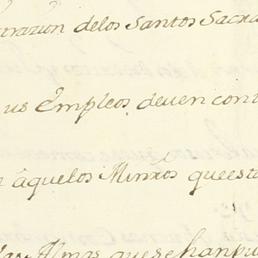 trazon delos Santos Sacra
us Empleos, deven cont
àquelos Minrôs queesta
las Almas quesehanpu